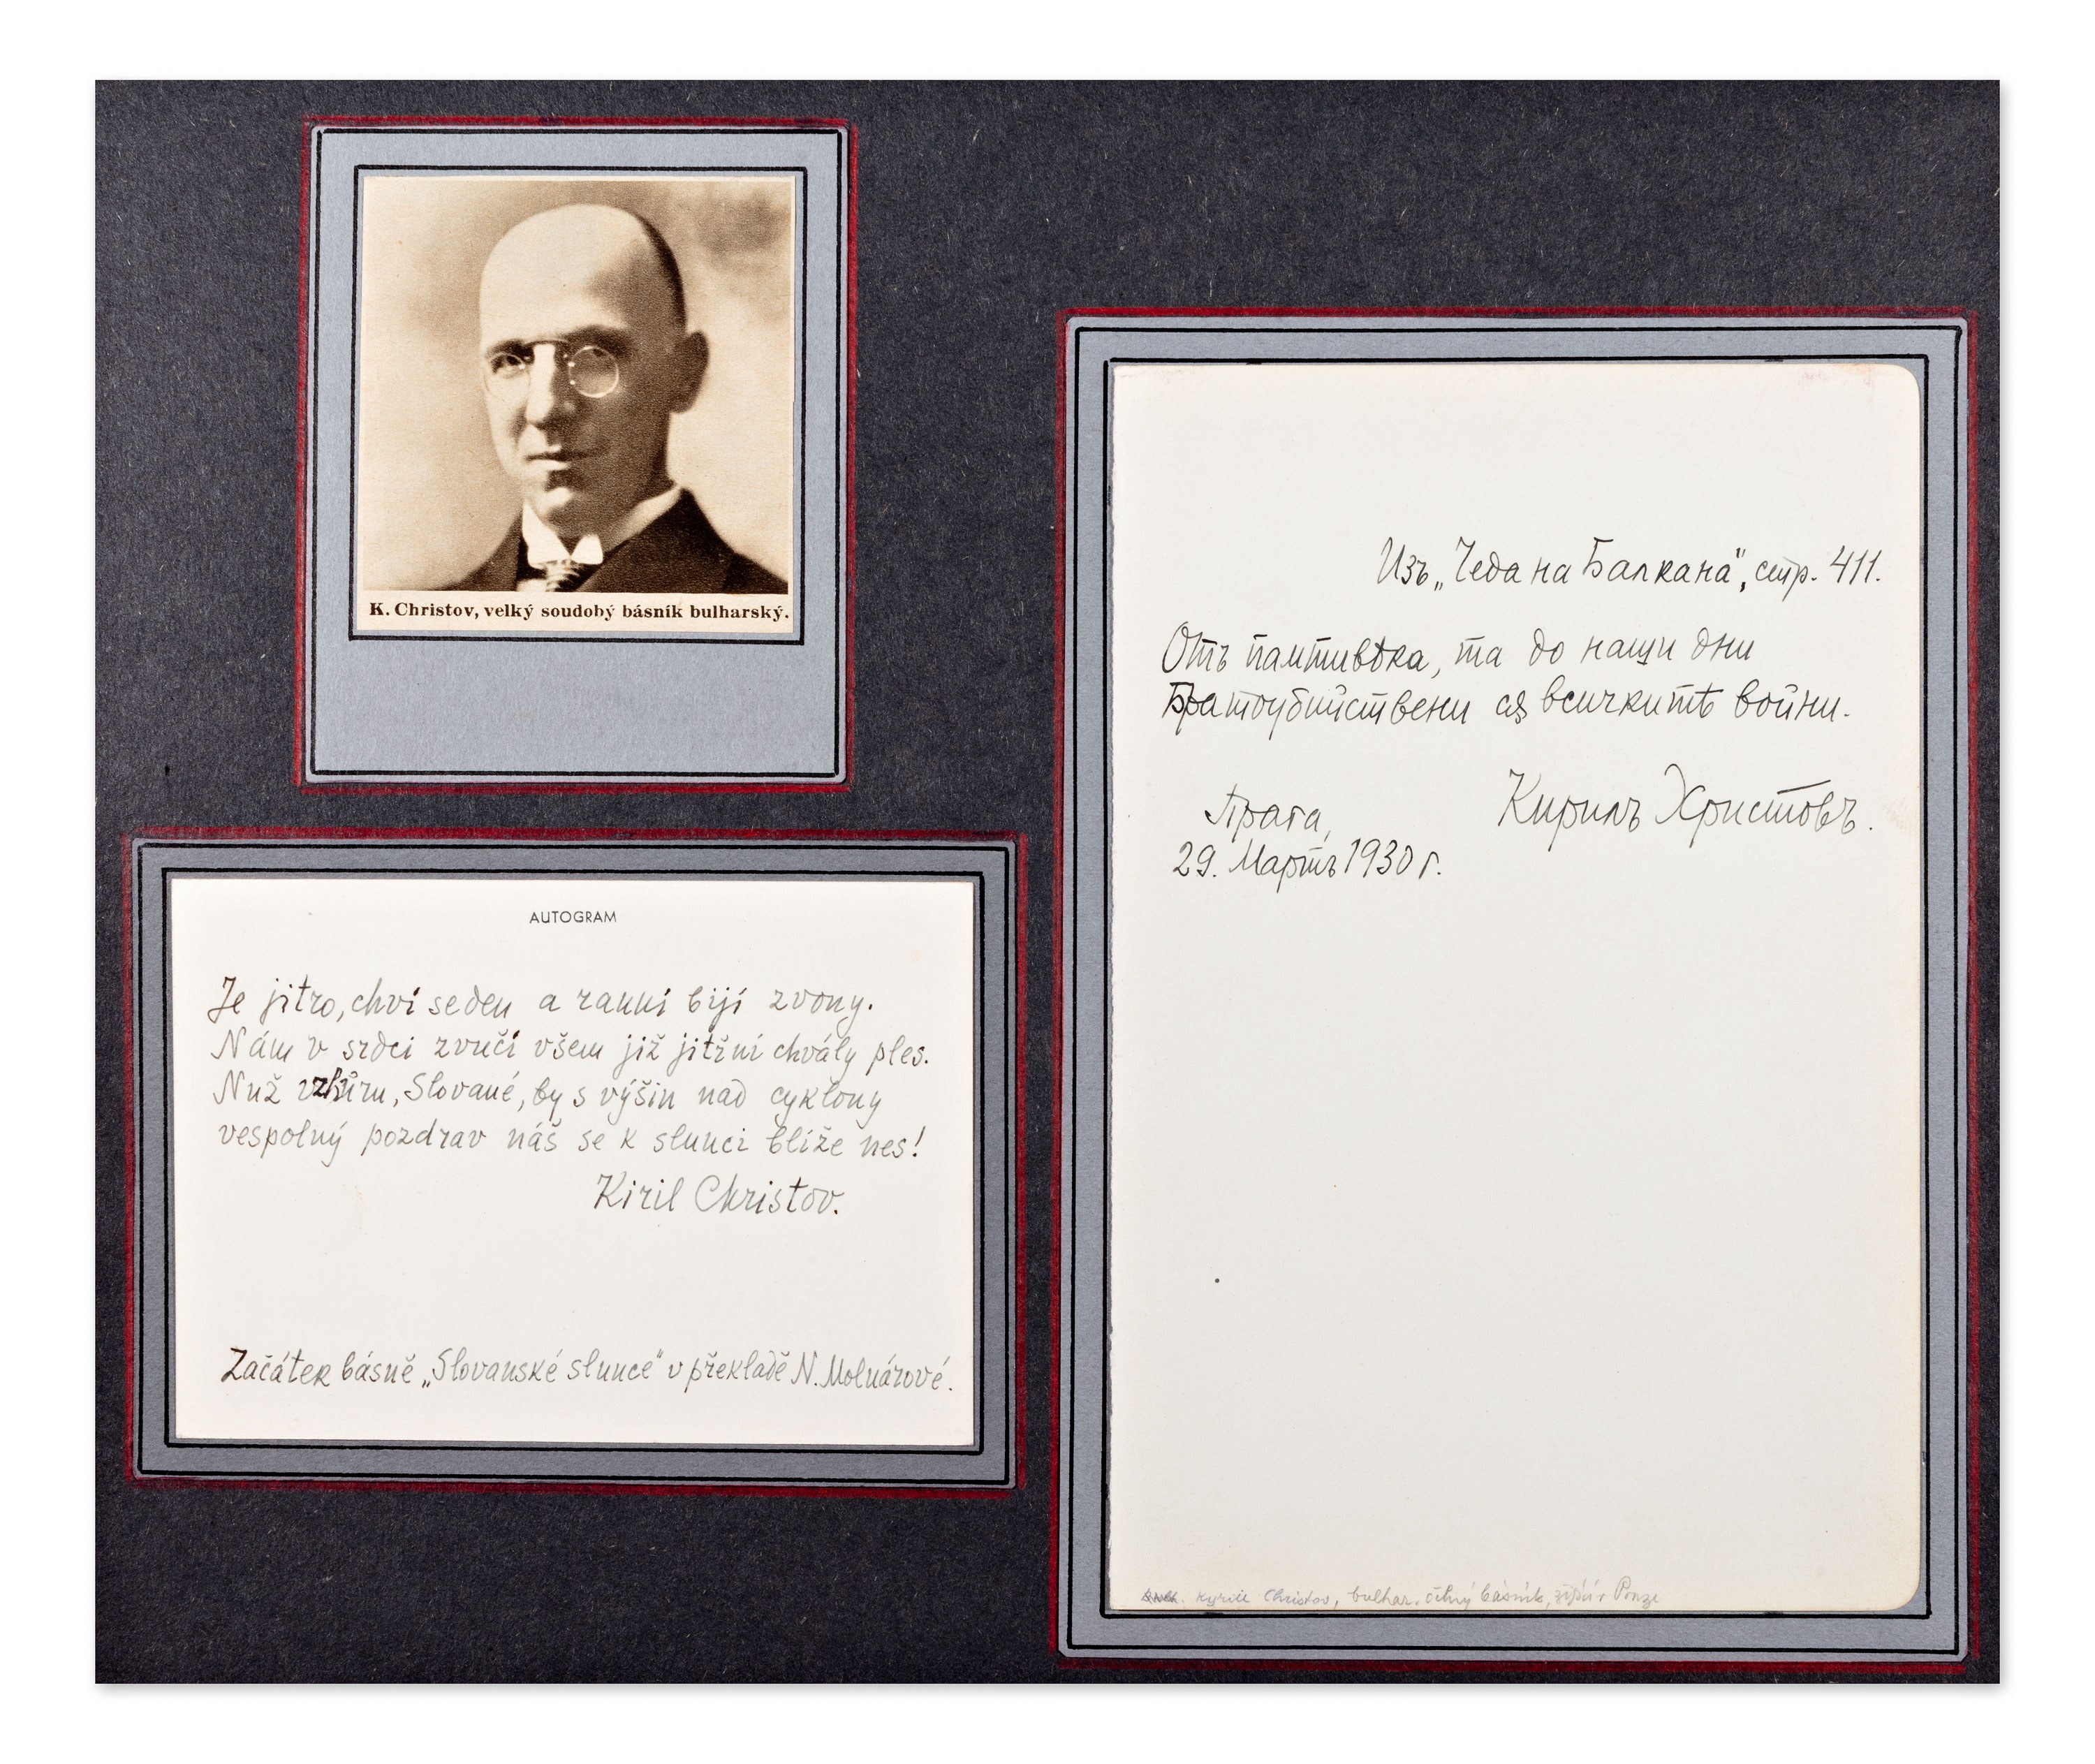 K. Christov, velký soudobý básník bulharský.
AUTOGRAM
Je jitro, chví se den a ranní bijí zvony.
Nám v srdci zvučí všem již jitřní chvály ples.
Nuž vzhůru, Slované, by s výšin nad cyklony
vespolný pozdrav náš se k slunci blíže nes!
Kiril Christov.
Začátek básně „Slovanské slunce" v překladě N. Molnárové.
Изъ „Чеда на Балкана", стр. 411.
Отъ памтивѣка, та до наши дни
Братоубийствени сѫ всичкитѣ войни.
Кирилъ Христовъ.
Прага,
29. Мартъ 1930 г.
Christov, bulhar. básník, Praze